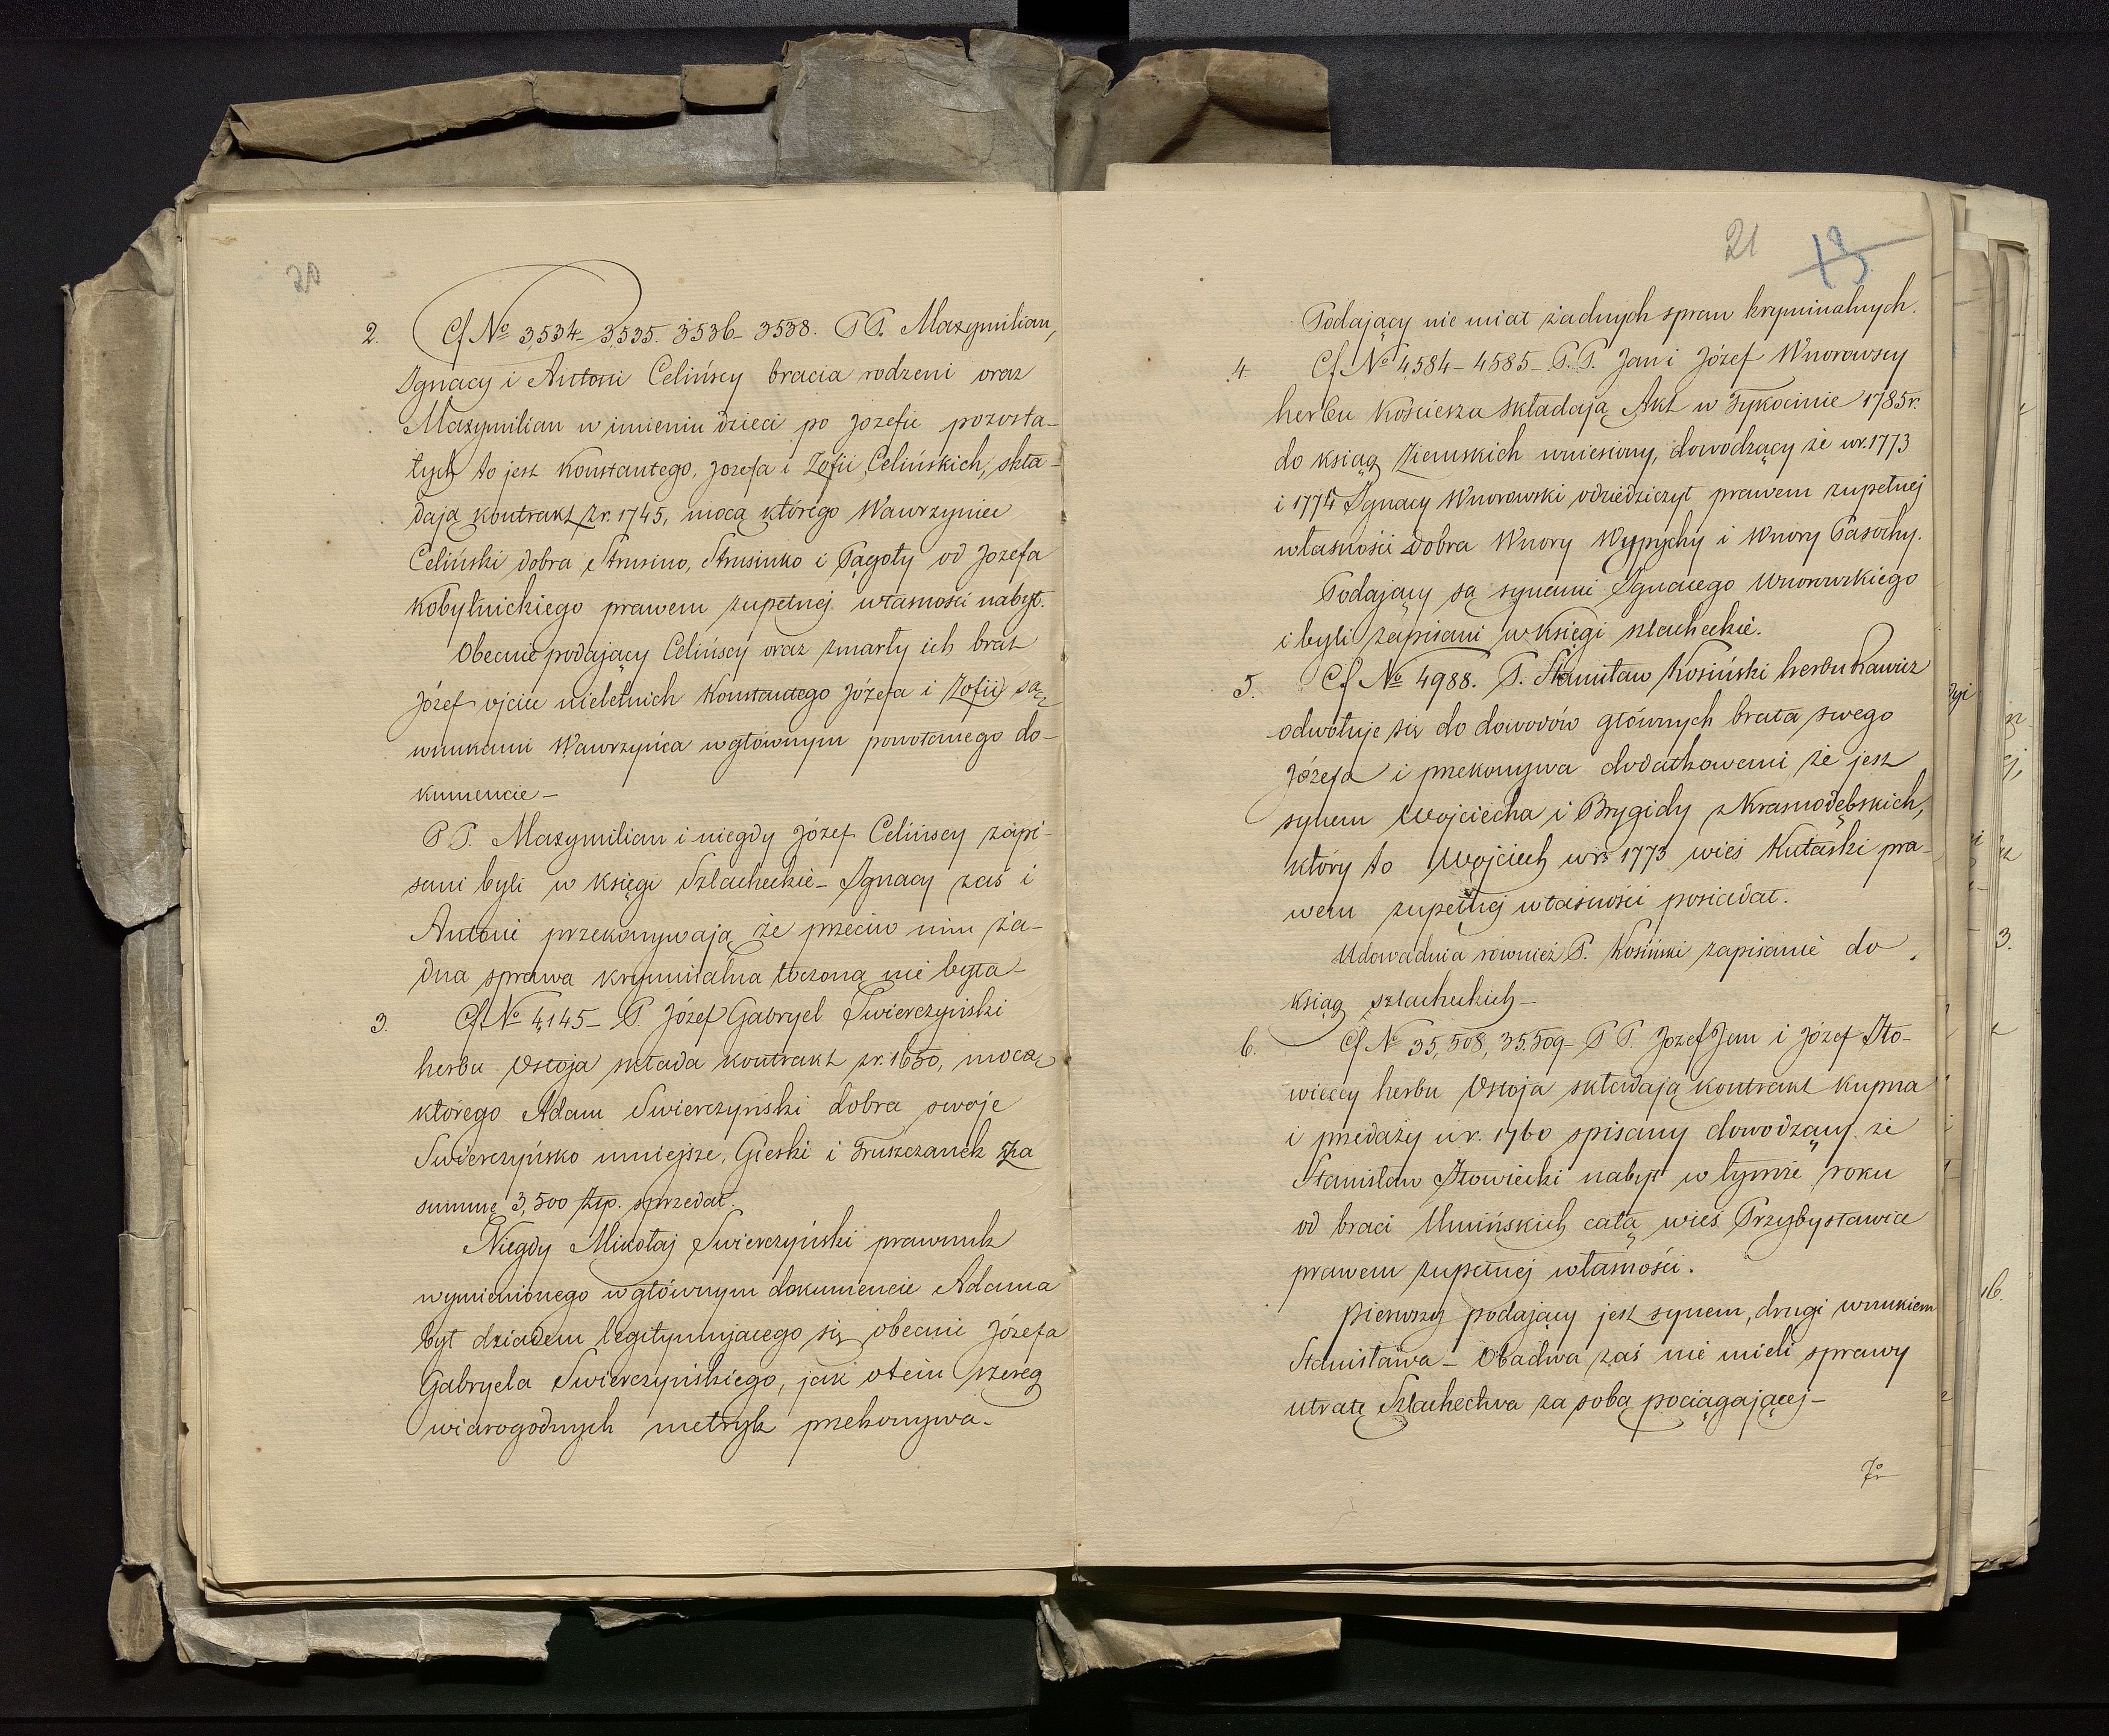 20
2. Cf № 3,534- 3535. 3536- 3538. P P. Maxymilian,
Ignacy i Antoni Celińscy bracia rodzeni oraz
Maxymilian w imieniu dzieci po Jozefie pozosta-
łych to jest Konstantego, Jozefa i Zofii Celińskich, skła-
dają kontrakt z r. 1745, mocą którego Wawrzyniec
Celiński dobra Strusino, Strusinko i Pągoty od Jozefa
Kobylnickiego prawem zupełnej własności nabył.
Obecnie podający Celińscy oraz zmarły ich brat
Józef ojciec nieletnich Konstantego Józefa i Zofii są
wnukami Wawrzyńca w głównym powołanego do-
kumencie -
P P. Maxymilian i niegdy Józef Celińscy zapi-
sani byli w księgi Szlacheckie - Ignacy zaś i
Antoni przekonywają że przeciw nim ża-
dna sprawa kryminalna toczoną nie była -
3. Cf № 4,145 - P. Józef Gabryel Swierczyński
herbu Ostoja składa kontrakt z r. 1650, mocą
którego Adam Swierczyński dobra swoje
Swierczyńsko mniejsze, Gieski i Truszczanek za
summę 3,500 złp. sprzedał.
Niegdy Mikołaj Swierczyński prawnuk
wymienionego w głównym dokumencie Adama
był dziadem legitymującego się obecnie Józefa
Gabryela Swierczyńskiego, jak o tem szereg
wiarogodnych metryk przekonywa -
21 13
Podający nie miał żadnych spraw kryminalnych.
4. Cf № 4,584 - 4585 - P. P. Jan i Józef Wnorowscy
herbu Kościesza składają Akt w Tykocinie 1785 r.
do ksiąg Ziemskich wniesiony, dowodzący że w r. 1773
i 1774 Ignacy Wnorowski odziedziczył prawem zupełnej
własności dobra Wnory Wypychy i Wnory Pasochy.
Podający są synami Ignacego Wnorowskiego
i byli zapisani w księgi szlacheckie.
5. Cf № 4988. P. Stanisław Kosiński herbu Rawicz
odwołuje się do dowodów głównych brata swego
Józefa i przekonywa dodatkowemi że jest
synem Wojciecha i Brygidy z Krasnodębskich,
który to Wojciech w r. 1773 wieś Kutaski pra-
wem zupełnej własności posiadał.
Udowadnia również P. Kosiński zapisanie do
ksiąg szlacheckich -
6. Cf № 35,508, 35.509 - P P. Jozef Jan i Józef Iło-
wieccy herbu Ostoja składają kontrakt kupna
i przedaży w r. 1760 spisany dowodzący że
Stanisław Iłowiecki nabył w tymże roku
od braci Umińskich całą wieś Przybysławice
prawem zupełnej własności.
Pierwszy podający jest synem, drugi wnukiem
Stanisława - Obadwa zaś nie mieli sprawy
utratę Szlachectwa za sobą pociągającej -
7º